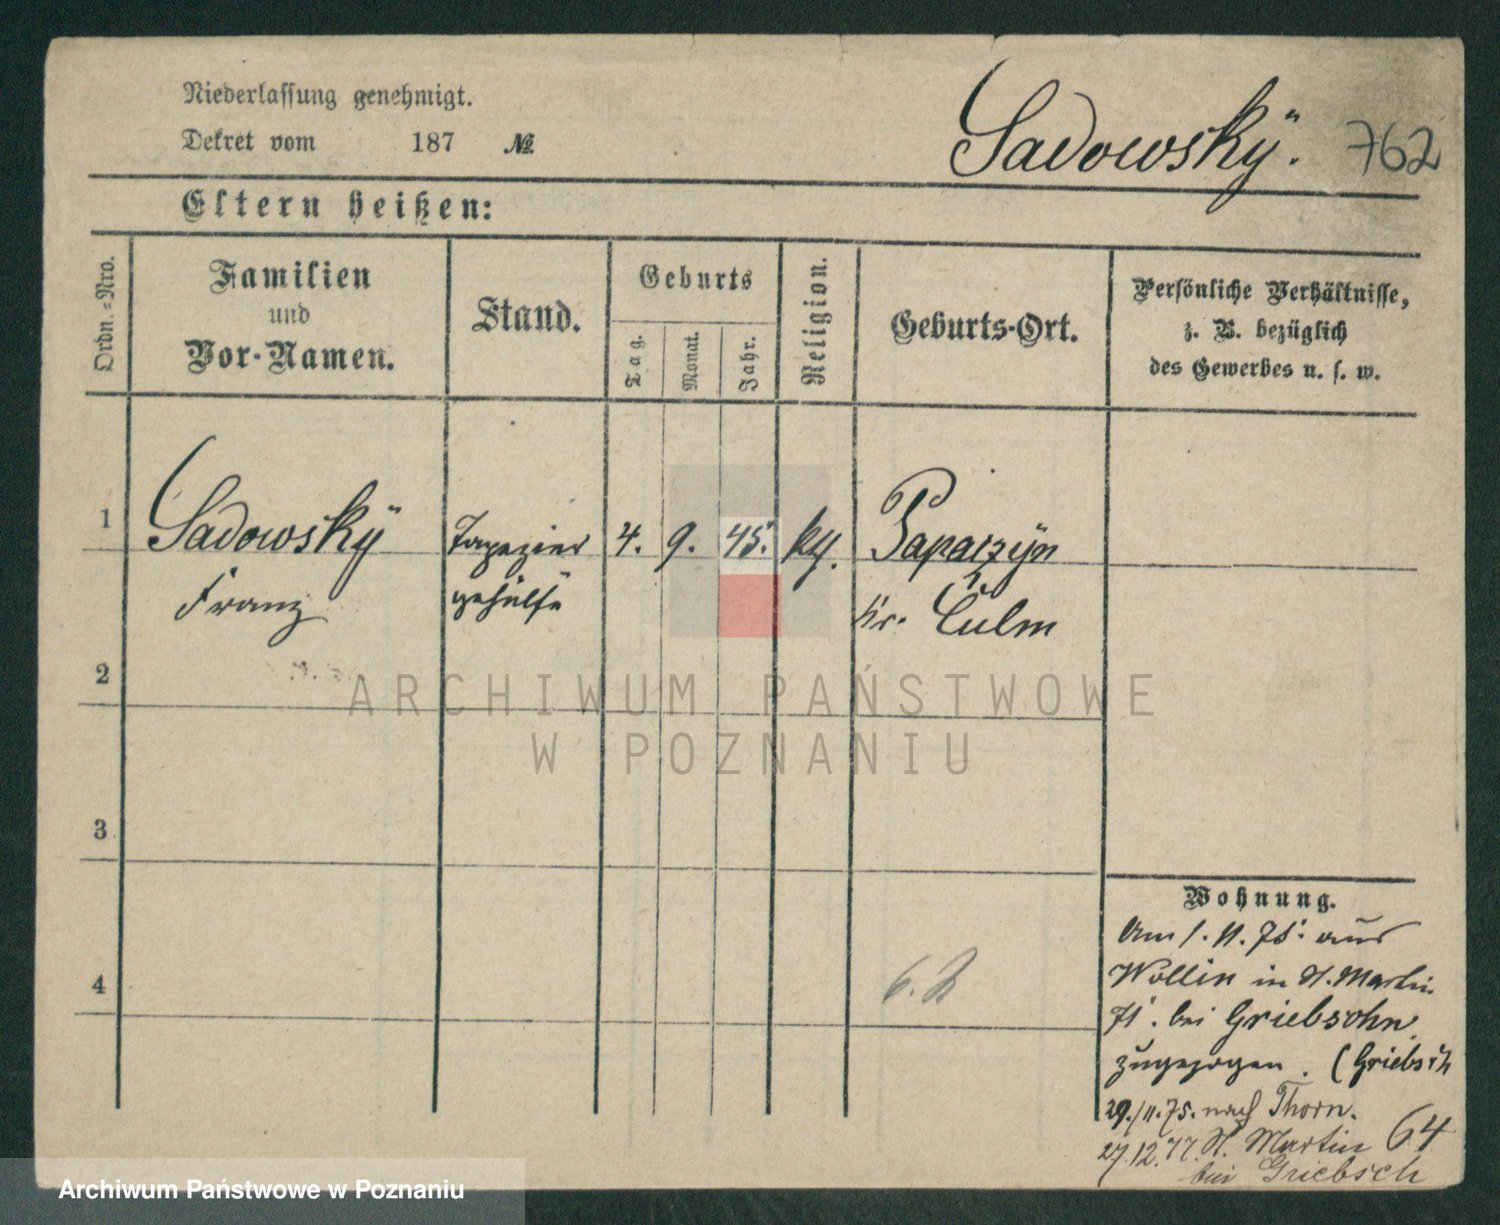 Niederlassung genehmigt.
Dekret vom 187 №
Sadowskÿ. 762
Eltern heißen:
Ordn.=Nro.
Familien
und
Vor-Namen.
Stand.
Geburts
Tag.
Monat.
Jahr.
Religion.
Geburts-Ort.
Persönliche Verhältnisse,
z. B. bezüglich
des Gewerbes u. s. w.
1 Sadowskÿ Tapezier 4. 9. 45. kth. Paparzÿn
Franz gehülfe Kr. Culm
2
3
4
Wohnung.
Am 1. 11. 75. aus
Wollin in St. Martin
71. bei Griebsohn
zugezogen. (Griebsch
29./11.75. nach Thorn.
27.12.77. St. Martin 64
bei Griebsch
ARCHIWUM PAŃSTWOWE
W POZNANIU
Archiwum Państwowe w Poznaniu